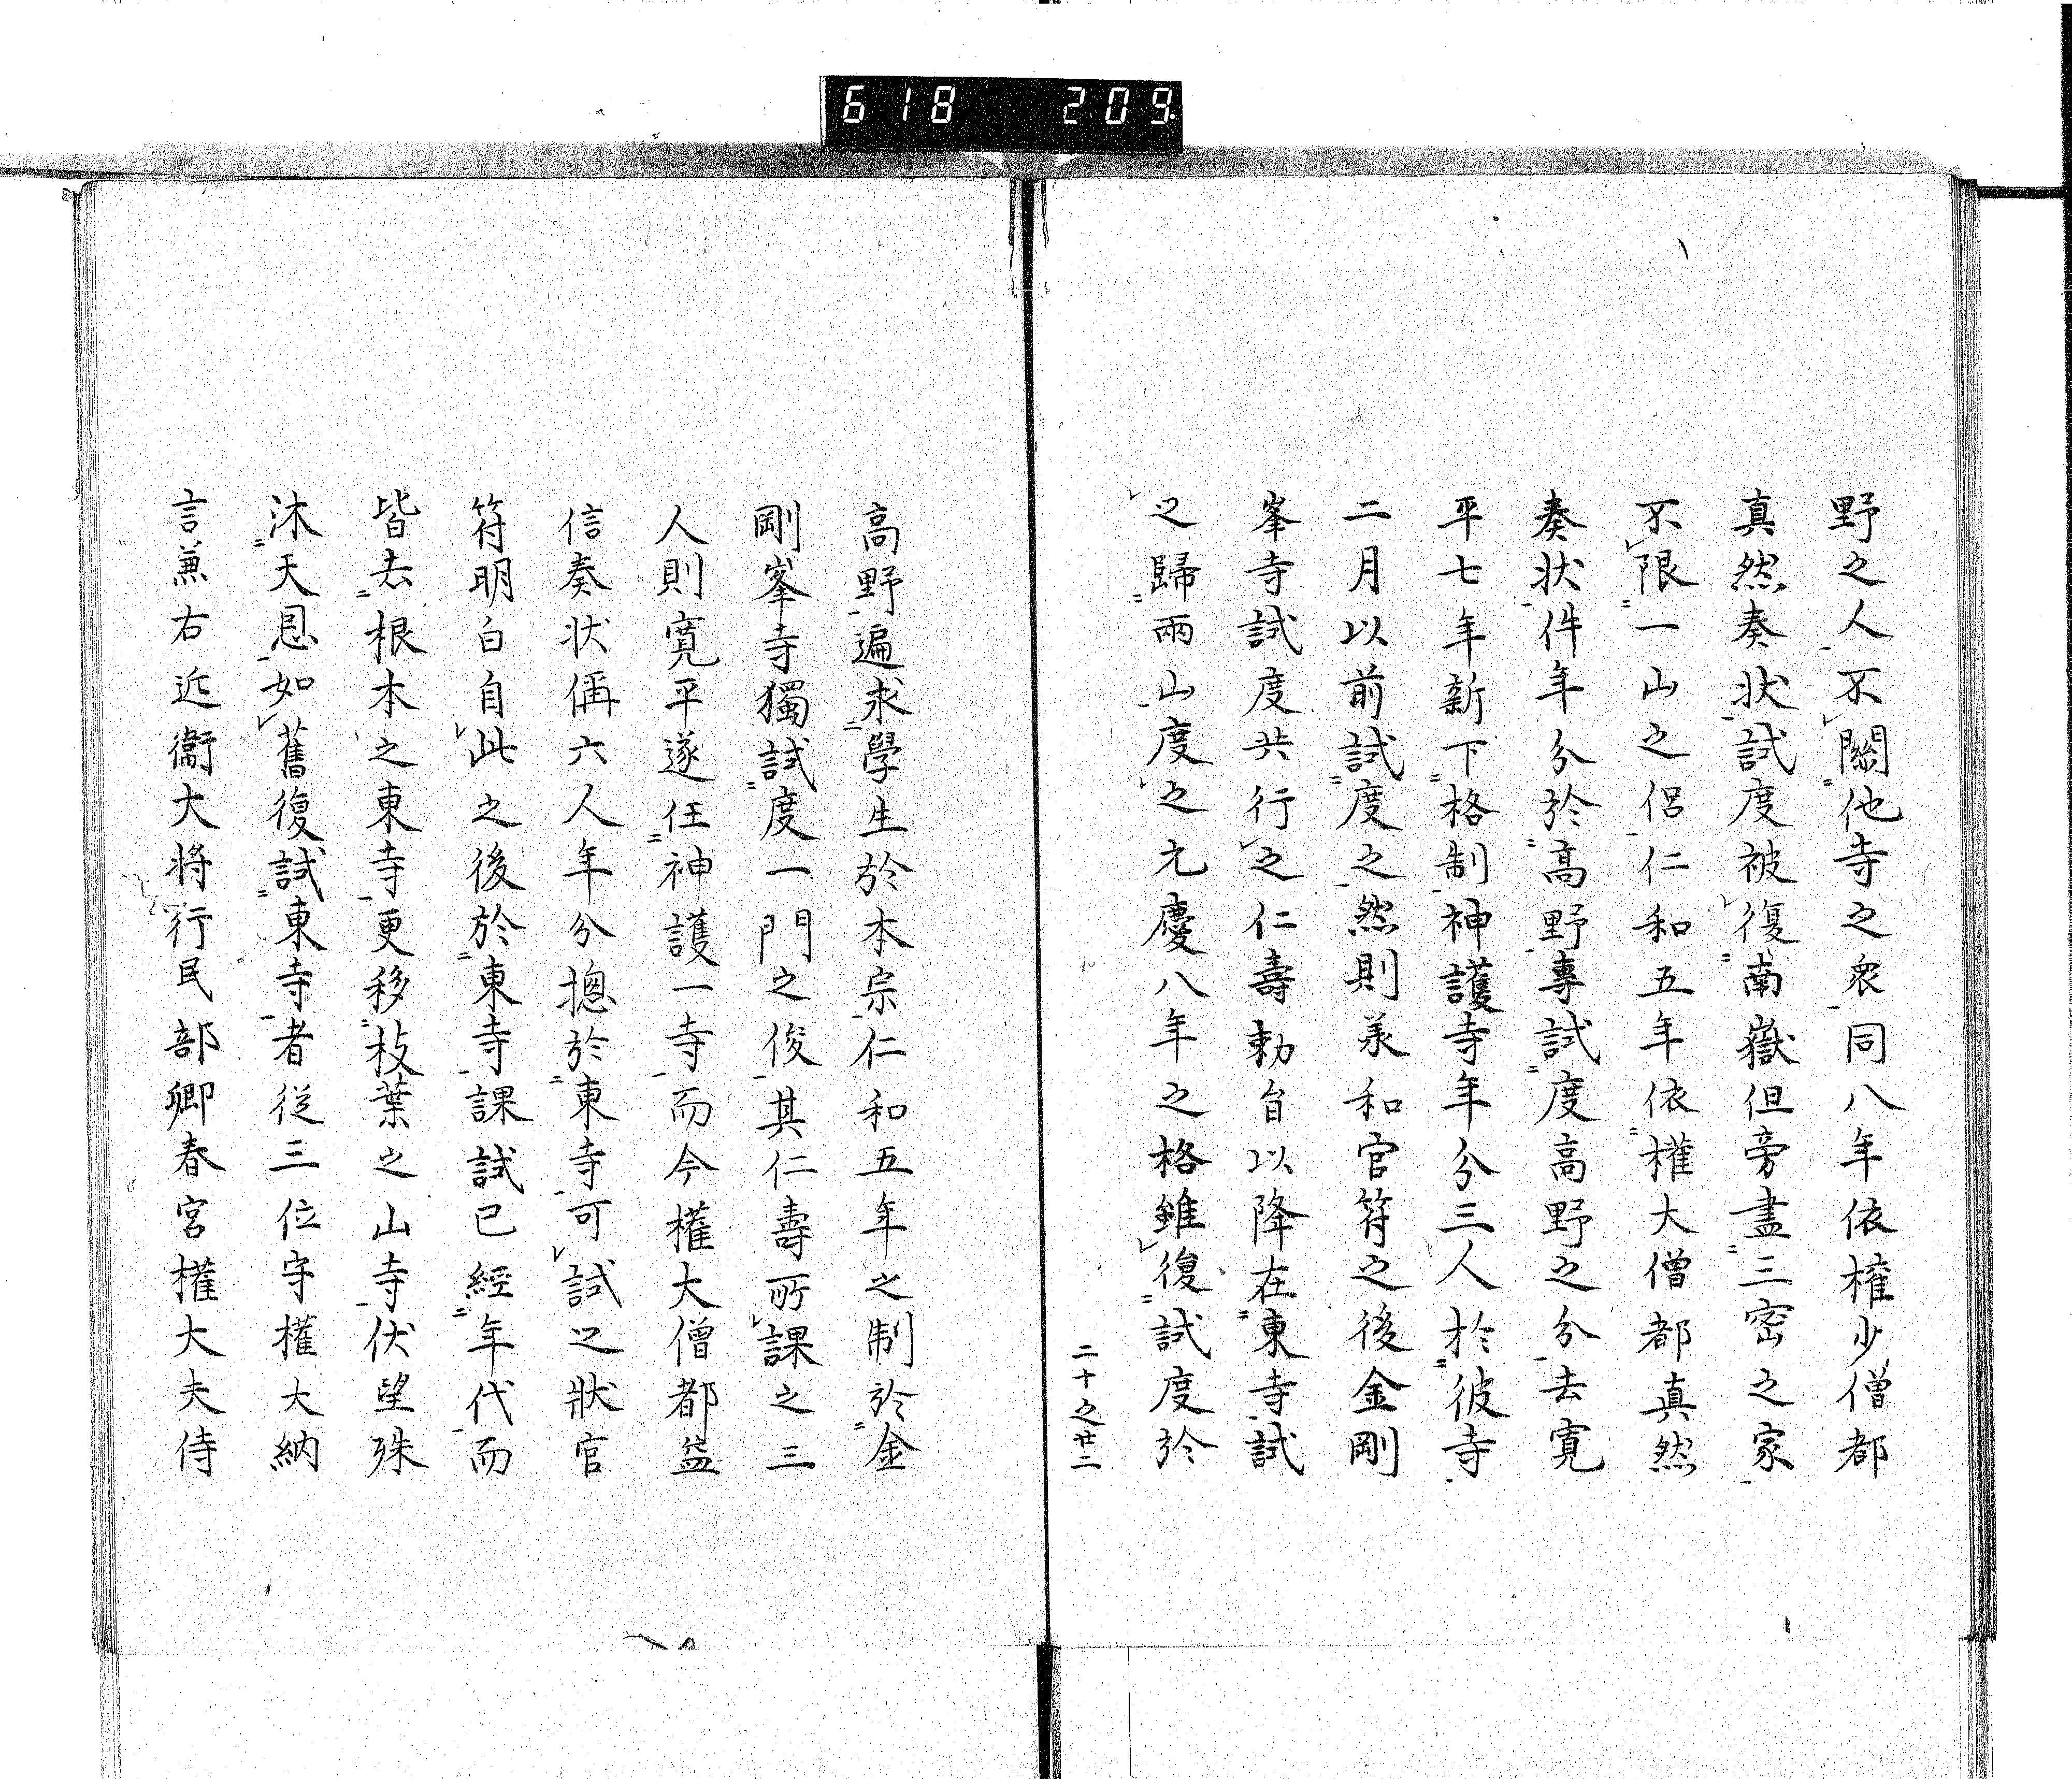 618 209
野之人不關他寺之衆同八年依權少僧都
真然奏状試度被復南嶽但旁盡三密之家
不限一山之侶仁和五年依權大僧都真然
奏状件年分於高野専試度高野之分去寛
平七年新下格制神護寺年分三人於彼寺
二月以前試度之然則羕和官符之後金剛
峯寺試度共行之仁壽勅旨以降在東寺試
之歸兩山度之元慶八年之格雖復試度於
二十之廿二
高野遍求學生於本宗仁和五年之制於金
剛峯寺獨試度一門之俊其仁壽所課之三
人則寛平遂任神護一寺而今權大僧都益
信奏状偁六人年分摠於東寺可試之狀官
符明白自此之後於東寺課試已經年代而
皆去根本之東寺更移枝葉之山寺伏望殊
沐天恩如舊復試東寺者従三位守權大納
言兼右近衞大将行民部卿春宮權大夫侍